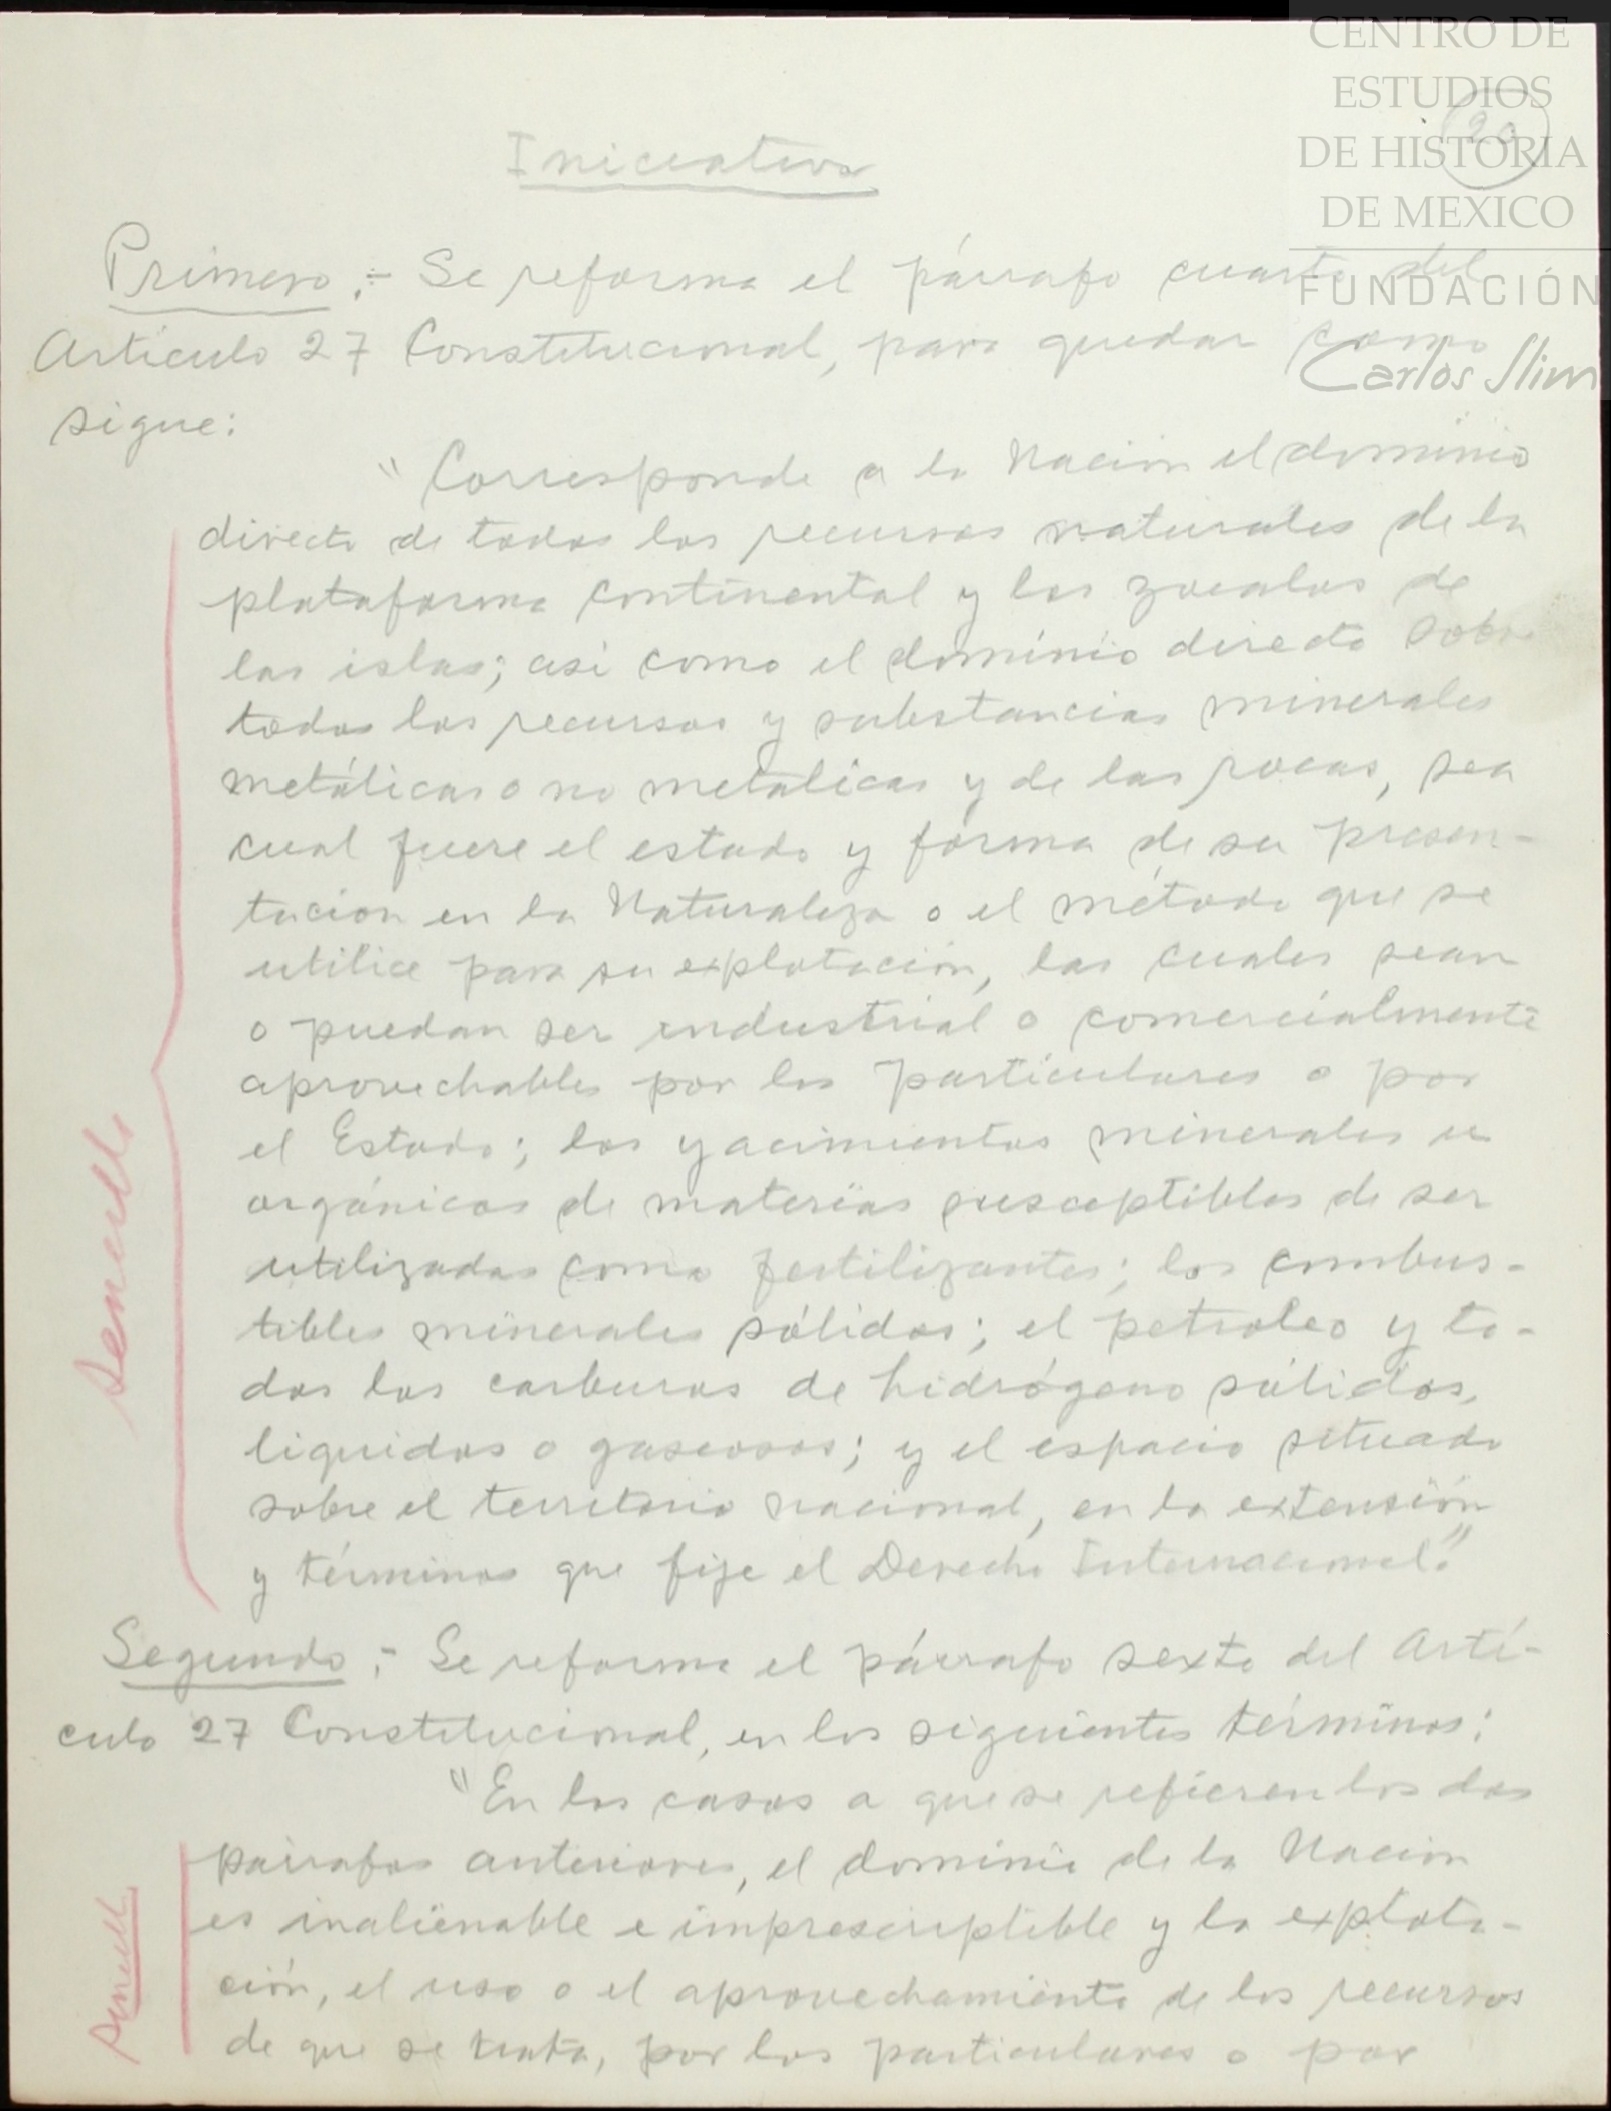 CENTRO DE
ESTUDIOS
DE HISTORIA
DE MEXICO
FUNDACIÓN
Carlos Slim
20
Iniciativa
Primero.- Se reforma el párrafo cuarto del
Artículo 27 Constitucional, para quedar como
sigue:
"Corresponde a la Nación el dominio
directo de todos los recursos naturales de la
plataforma continental y los zócalos de
las islas; así como el dominio directo sobre
todos los recursos y substancias minerales
metálicas o no metálicas y de las rocas, sea
cual fuere el estado y forma de su presen-
tación en la Naturaleza o el método que se
utilice para su explotación, las cuales sean
o puedan ser industrial o comercialmente
aprovechables por los particulares o por
el Estado; los yacimientos minerales u
orgánicos de materias susceptibles de ser
utilizadas como fertilizantes; los combus-
tibles minerales sólidos; el petroleo y to-
dos los carburos de hidrógeno sólidos,
liquidos o gaseosos; y el espacio situado
sobre el territorio nacional, en la extensión
y términos que fije el Derecho Internacional."
Segundo.- Se reforma el párrafo sexto del Artí-
culo 27 Constitucional, en los siguientes términos:
"En los casos a que se refieren los dos
párrafos anteriores, el dominio de la Nación
es inalienable e imprescriptible y la explota-
ción, el uso o el aprovechamiento de los recursos
de que se trata, por los particulares o por
sencillo
sencill